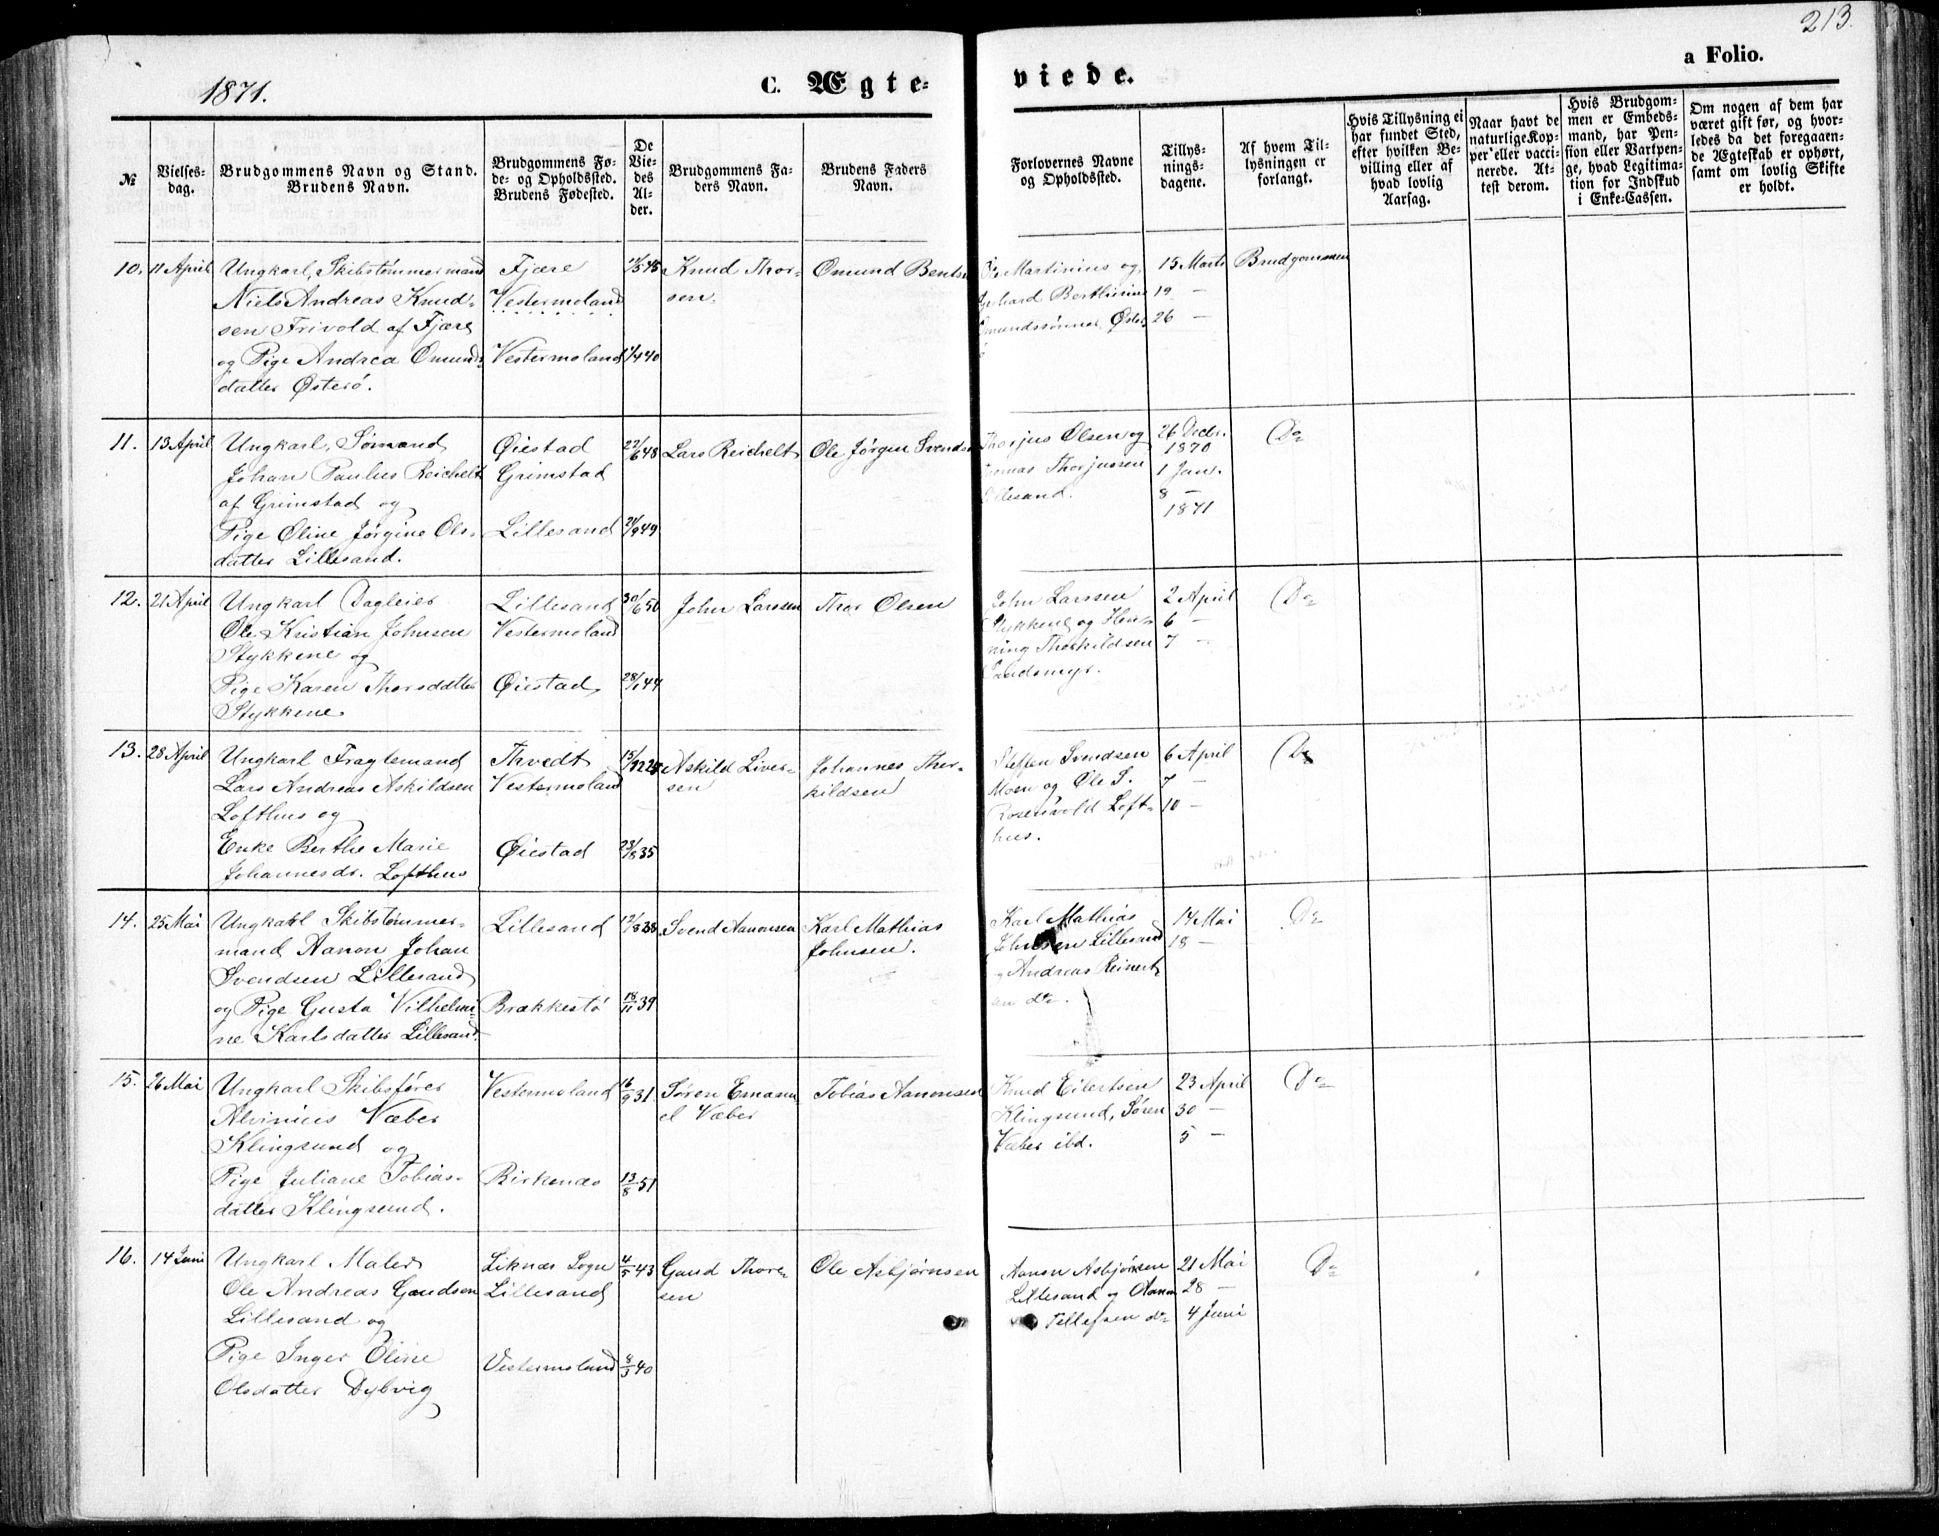 213.
1871.
C. Ægte-
viede.
a Folio.
№
Vielses-
dag.
Brudgommens Navn og Stand.
Brudens Navn.
Brudgommens Fø-
de- og Opholdssted.
Brudens Fødested.
De
Vie-
des
Al-
der.
Brudgommens Fa-
ders Navn.
Brudens Faders
Navn.
Forlovernes Navne
og Opholdssted.
Tillys-
nings-
dagene.
Af hvem Til-
lysningen er
forlangt.
Hvis Tillysning ei
har fundet Sted,
efter hvilken Be-
villing eller af
hvad lovlig
Aarsag.
Naar havt de
naturlige Kop-
per eller vacci-
nerede. At-
test derom.
Hvis Brudgom-
men er Embeds-
mand, har Pen-
sion eller Vartpen-
ge, hvad Legitima-
tion for Indskud
i Enke-Cassen.
Om nogen af dem har
været gift før, og hvor-
ledes da det foregaaen-
de Ægteskab er ophørt,
samt om lovlig Skifte
er holdt.
10. 11 April
Ungkarl, Skibstømmermand
Niels Andreas Knud-
sen Frivold af Fjære
og Pige Andrea Omunds-
datter Østerø.
Fjære
Vestermoland
Vestermoland
Knud Thor-
sen.
Omund Bents
Martinius og
Berthinius
Omundssønner, Øster-
15 Marts
19 —
26 —
Brudgommen
11. 13 April
Ungkarl, Sømand
Johan Paulus Reichelt
af Grimstad og
Pige Oline Jørgine Ols-
datter Lillesand.
Øiestad
Grimstad
Lillesand
22/6 48
Lars Reichelt
Ole Jørgen Svends
Thorjus Olsen og
Thorjussen
26 Decbr.
1870
1 Jan.
8 —
1871
Do
12. 21 April
Ungkarl Dagleier
Ole Kristian Johnsen
Stykkene og
Pige Karen Thorsdatter
Stykkene
Lillesand
Vestermoland
Øiestad
30/6 50
28/1 44
John Larssen
Thor Olsen
John Larssen
Stykkene og Hen-
ning Thorkildsen
Sandsmyr.
2 April
6 —
7 —
Do
13. 28 April
Ungkarl Fragtemand
Lars Andreas Askildsen
Lofthus og
Enke Berthe Marie
Johannesdr. Lofthus
Thvedt
Vestermoland
Øiestad
23/8 35
Askild Liver-
sen
Johannes Thor-
kildsen
Steffen Svendsen
Moen og Ole S.
Rosenvold Loft-
hus.
6 April
7 —
10 —
Do
14. 25 Mai
Ungkarl Skibstømmer-
mand Aanon Johan
Svendsen Lillesand
og Pige Gusta Vilhelmi-
ne Karlsdatter Lillesand.
Lillesand
Brækkestø
12/8 38
18/11 39
Svend Aanonsen
Karl Mathias
Johnsen.
Karl Mathias
Johnsen Lillesand
og Andreas Reinert-
sen do.
14 Mai
18 —
Do
15. 26 Mai
Ungkarl Skibsfører
Alvinius Væber
Klingsund og
Pige Juliane Tobias-
datter Klingsund.
Vestermoland
Birkenæs
16/9 31
13/8 51
Søren Emanu-
el Væber
Tobias Aanonsen
Knud Eilertsen
Klingsund, Søren
Væber ibd.
23 April
30 —
5 —
Do
16. 14 Juni
Ungkarl Maler
Ole Andreas Gundsen
Lillesand og
Pige Inger Eline
Olsdatter Dybvig
Liknæs Sogn
Lillesand
Vestermoland
4/5 43
8/3 40
Gund Thore-
sen
Ole Asbjørnsen
Aanon Asbjørnsen
Lillesand og Aanon
Tellefsen do
21 Mai
28 —
4 Juni
Do